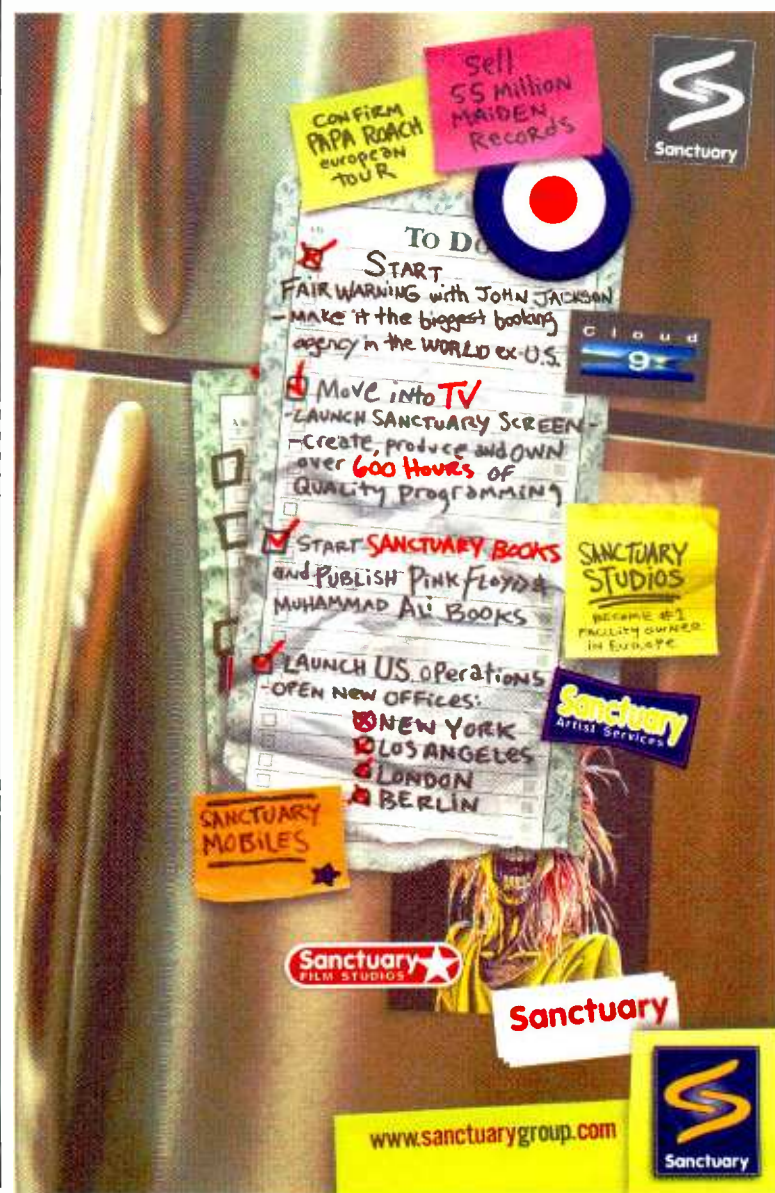 CONFIRM
PAPA ROACH
european
TOUR
Sell
55 Million
MAIDEN
Records
Sanctuary
To Do
START
FAIR WARNING with JOHN JACKSON
- MAKE it the biggest booking
agency in the WORLD ex-U.S.
Cloud
9
Move into TV
- LAUNCH SANCTUARY SCREEN -
- Create, produce and OWN
over 600 Hours OF
QUALity programming
START SANCTUARY BOOKS
and PUBLISH PINK FLOYD &
MUHAMMAD ALI BOOKS
SANCTUARY
STUDIOS
BECOME #1
FACILITY OWNER
IN EUROPE
LAUNCH U.S. OPerations
- OPEN New OFFICES:
NEW YORK
LOS ANGELES
LONDON
BERLIN
Sanctuary
Artist Services
SANCTUARY
MOBILES
Sanctuary
FILM STUDIOS
Sanctuary
www.sanctuarygroup.com
Sanctuary